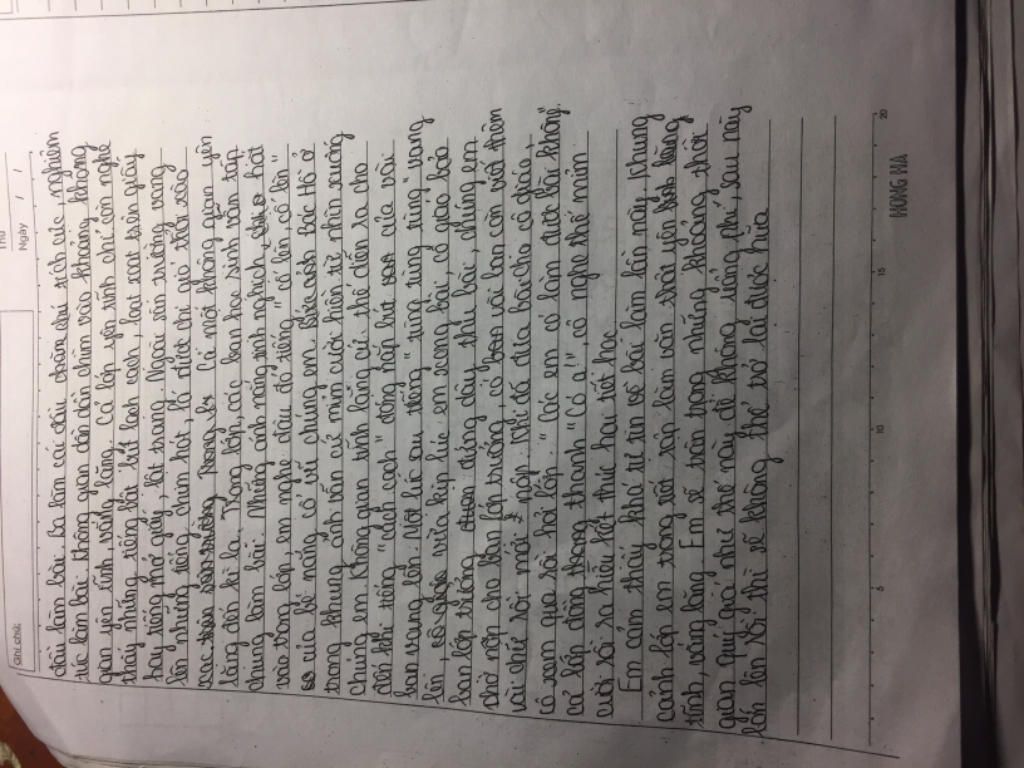 Thứ
Ngày / /
Ghi chú:
làm bài. Ba làm cái đầu chăm chú tích cực, nghiêm
túc làm bài. Không gian dần dần chìm vào khoảng không
gian yên tĩnh, vắng lặng. Cả lớp yên tĩnh chỉ còn nghe
thấy những tiếng bút lạch cạch, loạt soạt trên giấy
hay tiếng mở giấy, lật trang. Ngoài sân trường vang
lên những tiếng chim hót, lá đưa chị gió thổi xào
xạc Có một không gian yên
lặng đến kì lạ. Trong lớp, các bạn học sinh vẫn tập
chung làm bài. Những ánh nắng tinh nghịch, hắt
vào trong lớp, em nghe đâu đó tiếng "cố lên, cố lên"
của bé nắng cổ vũ chúng em. Bức ảnh Bác Hồ ở
trong khung ảnh vẫn cứ mỉm cười hiền từ nhìn xuống
chúng em. Không gian tĩnh lặng cứ thế diễn ra cho
đến khi tiếng "cạch cạch" đóng nắp bút của vài
bạn vang lên. Một lúc sau tiếng "tùng tùng tùng" vang
lên, vừa kịp lúc em xong bài. Cô giáo bảo
bạn lớp trưởng đứng dậy thu bài, chúng em
nhờ nộp cho bạn lớp trưởng, có bạn vài bạn còn vội thêm
vài chữ rồi mới nộp. Khi đã đưa bài cho cô giáo,
cô xem qua rồi hỏi lớp: "Các em có làm được bài không"
cả lớp đồng thanh "Có ạ!", cô nghe thế mỉm
cười rồi ra hiệu kết thúc hai tiết học.
Em cảm thấy khá tự tin về bài làm lần này, khung
cảnh lớp em trong tiết tập làm văn thật yên tĩnh
tĩnh, vắng lặng. Em sẽ trân trọng những khoảng thời
gian quý giá như thế này để không lãng phí, sau này
lớn lên rồi thì sẽ không thể trở lại được nữa.
5 10 15 20
HONG HA